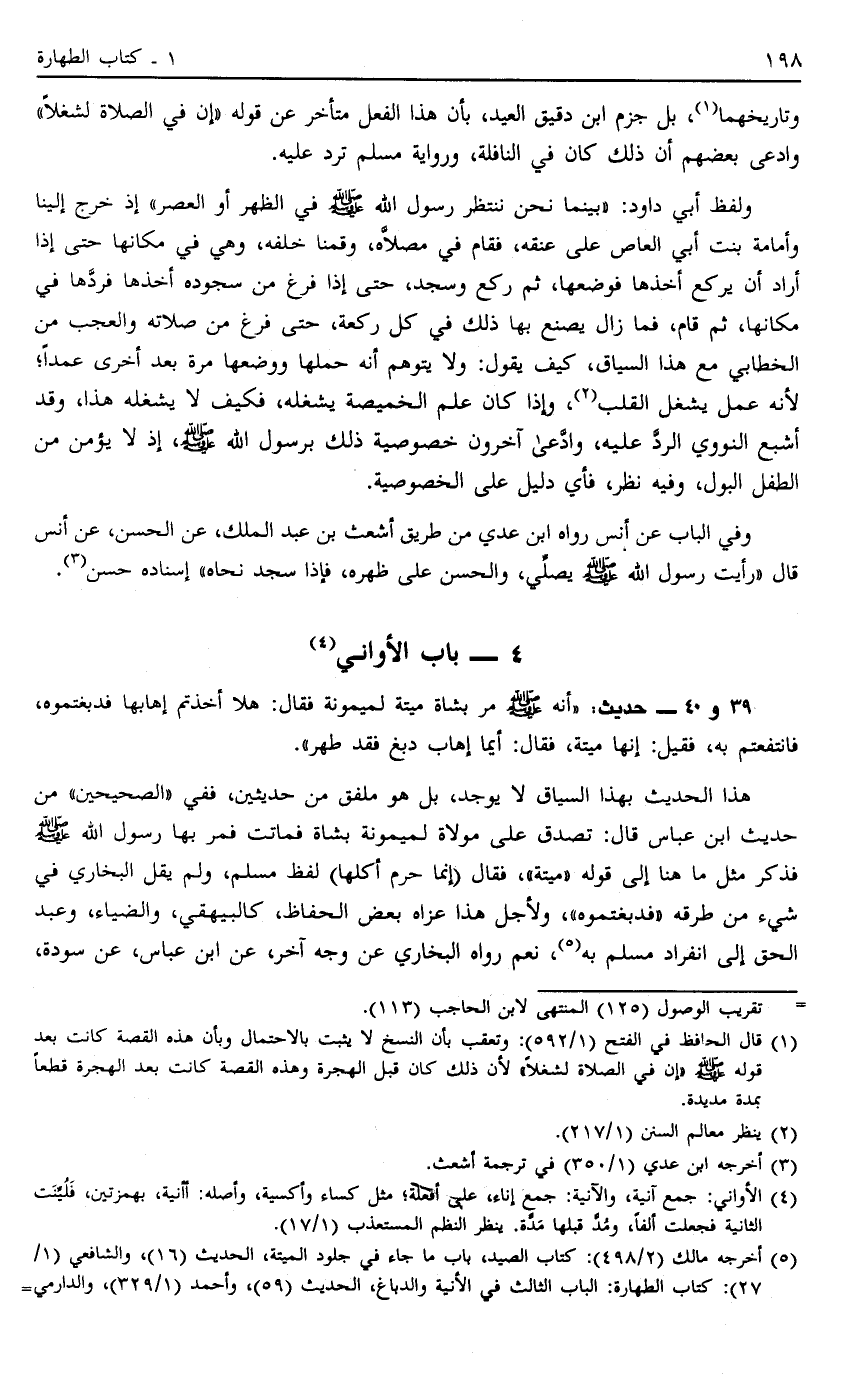 ١٩٨
١ ـ كتاب الطهارة
وتاريخهما(١)، بل جزم ابن دقيق العيد، بأن هذا الفعل متأخر عن قوله «إن في الصلاة لشغلاً»
وادعى بعضهم أن ذلك كان في النافلة، ورواية مسلم ترد عليه.
ولفظ أبي داود: «بينما نحن ننتظر رسول الله ﷺ في الظهر أو العصر» إذ خرج إلينا
وأمامة بنت أبي العاص على عنقه، فقام في مصلاَّه، وقمنا خلفه، وهي في مكانها حتى إذا
أراد أن يركع أخذها فوضعها، ثم ركع وسجد، حتى إذا فرغ من سجوده أخذها فردَّها في
مكانها، ثم قام، فما زال يصنع بها ذلك في كل ركعة، حتى فرغ من صلاته والعجب من
الخطابي مع هذا السياق، كيف يقول: ولا يتوهم أنه حملها ووضعها مرة بعد أخرى عمداً؛
لأنه عمل يشغل القلب(٢)، وإذا كان علم الخميصة يشغله، فكيف لا يشغله هذا، وقد
أشبع النووي الردَّ عليه، وادَّعىٰ آخرون خصوصية ذلك برسول الله ﷺ، إذ لا يؤمن من
الطفل البول، وفيه نظر، فأي دليل على الخصوصية.
وفي الباب عن أنس رواه ابن عدي من طريق أشعث بن عبد الملك، عن الحسن، عن أنس
قال «رأيت رسول الله ﷺ يصلِّي، والحسن على ظهره، فإذا سجد نحاه» إسناده حسن(٣).
٤ ـــ باب الأواني(٤)
٣٩ و ٤٠ ـــ حديث: «أنه ﷺ مر بشاة ميتة لميمونة فقال: هلا أخذتم إهابها فدبغتموه،
فانتفعتم به، فقيل: إنها ميتة، فقال: أيما إهاب دبغ فقد طهر».
هذا الحديث بهذا السياق لا يوجد، بل هو ملفق من حديثين، ففي «الصحيحين» من
حديث ابن عباس قال: تصدق على مولاة لميمونة بشاة فماتت فمر بها رسول الله ﷺ
فذكر مثل ما هنا إلى قوله «ميتة»، فقال (إنما حرم أكلها) لفظ مسلم، ولم يقل البخاري في
شيء من طرقه «فدبغتموه»، ولأجل هذا عزاه بعض الحفاظ، كالبيهقي، والضياء، وعبد
الحق إلى انفراد مسلم به(٥)، نعم رواه البخاري عن وجه آخر، عن ابن عباس، عن سودة،
= تقريب الوصول (١٢٥) المنتهى لابن الحاجب (١١٣).
(١) قال الحافظ في الفتح (٥٩٢/١): وتعقب بأن النسخ لا يثبت بالاحتمال وبأن هذه القصة كانت بعد
قوله ﷺ «إن في الصلاة لشغلاً» لأن ذلك كان قبل الهجرة وهذه القصة كانت بعد الهجرة قطعاً
بمدة مديدة.
(٢) ينظر معالم السنن (٢١٧/١).
(٣) أخرجه ابن عدي (٣٥٠/١) في ترجمة أشعث.
(٤) الأواني: جمع آنية، والآنية: جمع إناء، على أفعلة؛ مثل كساء وأكسية، وأصله: أأنية، بهمزتين، فَلُيِّنَت
الثانية فجعلت ألفاً، ومُدَّ قبلها مَدَّة. ينظر النظم المستعذب (١٧/١).
(٥) أخرجه مالك (٤٩٨/٢): كتاب الصيد، باب ما جاء في جلود الميتة، الحديث (١٦)، والشافعي (١/
٢٧): كتاب الطهارة: الباب الثالث في الأنية والدباغ، الحديث (٥٩)، وأحمد (٣٢٩/١)، والدارمي=